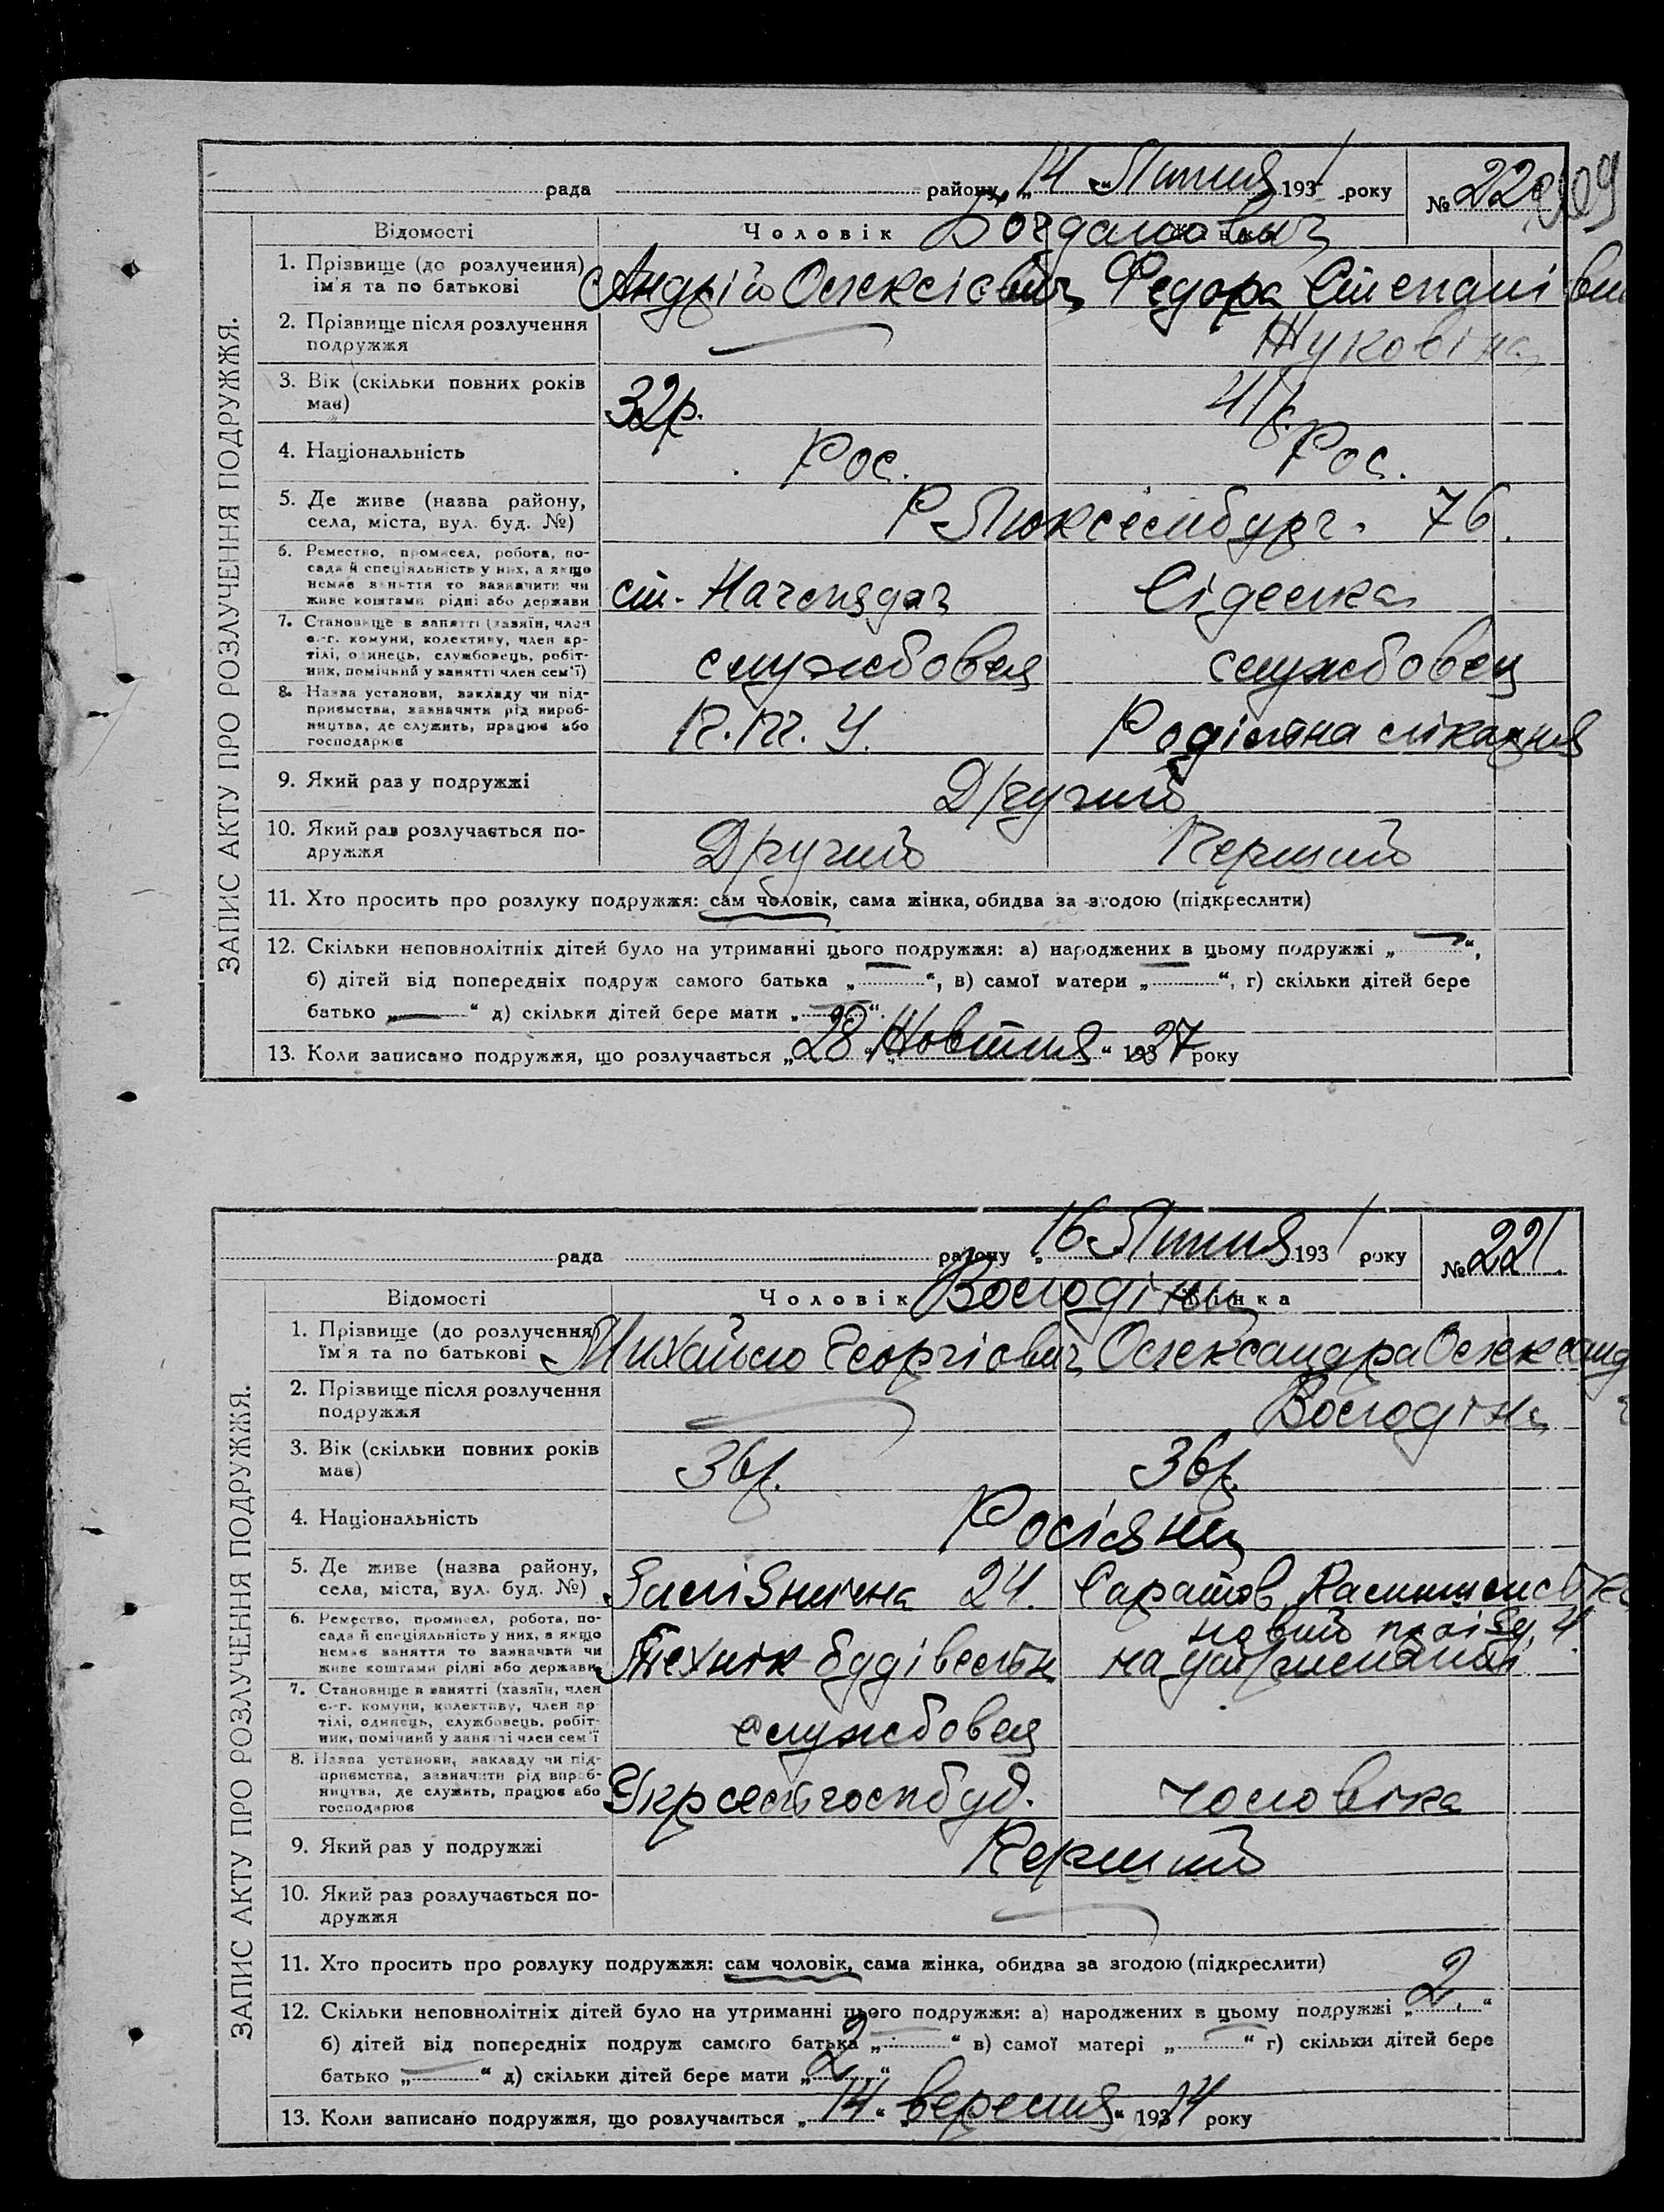 рада району „14“ Липня 1931 року № 220
209
Відомості Чоловік Жінка
Богданович
1. Прізвище (до розлучення) ім'я та по батькові Андрій Олексієвич Федора Степанівна
2. Прізвище після розлучення подружжя Жуковіна
3. Вік (скільки повних років має) 32р. 41р.
4. Національність Рос. Рос.
5. Де живе (назва району, села, міста, вул. буд. №) Р. Люксембург. 76.
6. Ремество, промисел, робота, по-
сада й спеціяльність у них, а якщо
немає заняття то зазначити чи
живе коштами рідні або держави
ст. Наглядач Сіделка
7. Становище в занятті (хазяїн, член
с.-г. комуни, колективу, член ар-
тілі, одинець, службовець, робіт-
ник, помічний у занятті член сем'ї)
службовец службовец
8. Назва установи, закладу чи під-
приємства, зазначити рід вироб-
ництва, де служить, працює або
господарює
Родільна лікарня
9. Який раз у подружжі Другий
10. Який раз розлучається по-
дружжя Другий Перший
11. Хто просить про розлуку подружжя: сам чоловік, сама жінка, обидва за згодою (підкреслити)
12. Скільки неповнолітніх дітей було на утриманні цього подружжя: а) народжених в цьому подружжі „—“,
б) дітей від попередніх подруж самого батька „—“, в) самої матери „—“, г) скільки дітей бере
батько „—“ д) скільки дітей бере мати „—“.
13. Коли записано подружжя, що розлучається „28“ „Жовтня“ 1927 року
ЗАПИС АКТУ ПРО РОЗЛУЧЕННЯ ПОДРУЖЖЯ.
рада району „16 Липня 1931 року № 221.
Відомості Чоловік Жінка
Володіни
1. Прізвище (до розлучення) ім'я та по батькові Михайло Георгіович Олександра Олександ
2. Прізвище після розлучення подружжя Володіна
3. Вік (скільки повних років має) 36р. 36р.
4. Національність Росіяни
5. Де живе (назва району, села, міста, вул. буд. №) Залізнична 24. Саратов,
6. Ремество, промисел, робота, по-
сада й спеціяльність у них, а якщо
немає заняття то зазначити чи
живе коштами рідні або держави
Технік будівельн на утриманні
7. Становище в занятті (хазяїн, член
с.-г. комуни, колективу, член ар-
тілі, одинець, службовець, робіт-
ник, помічний у занятті член сем'ї
службовец
8. Назва установи, закладу чи під-
приємства, зазначити рід вироб-
ництва, де служить, працює або
господарює
Укрсельгоспбуд. чоловіка
9. Який раз у подружжі Перший
10. Який раз розлучається по-
дружжя
11. Хто просить про розлуку подружжя: сам чоловік, сама жінка, обидва за згодою (підкреслити)
12. Скільки неповнолітніх дітей було на утриманні цього подружжя: а) народжених в цьому подружжі „2.“
б) дітей від попередніх подруж самого батька „—“ в) самої матері „—“ г) скільки дітей бере
батько „—“ д) скільки дітей бере мати „2“
13. Коли записано подружжя, що розлучається „14“ „вересня“ 1914 року
ЗАПИС АКТУ ПРО РОЗЛУЧЕННЯ ПОДРУЖЖЯ.